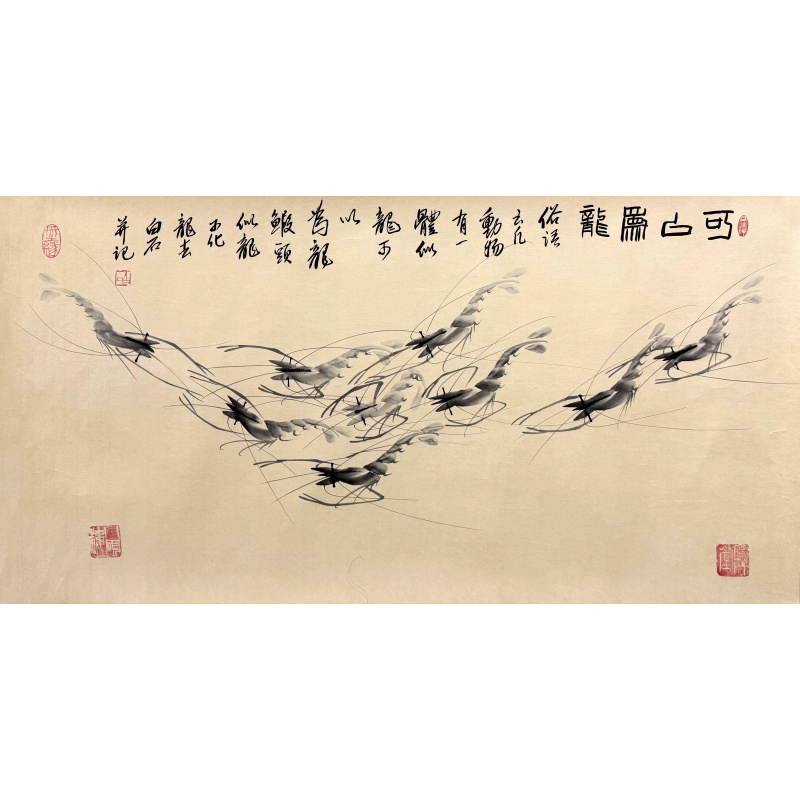 可㠯爲龍
俗語
云凡
動物
有一
體似
龍可
以
為龍
鰕頭
似龍
可化
龍去
白石
并记